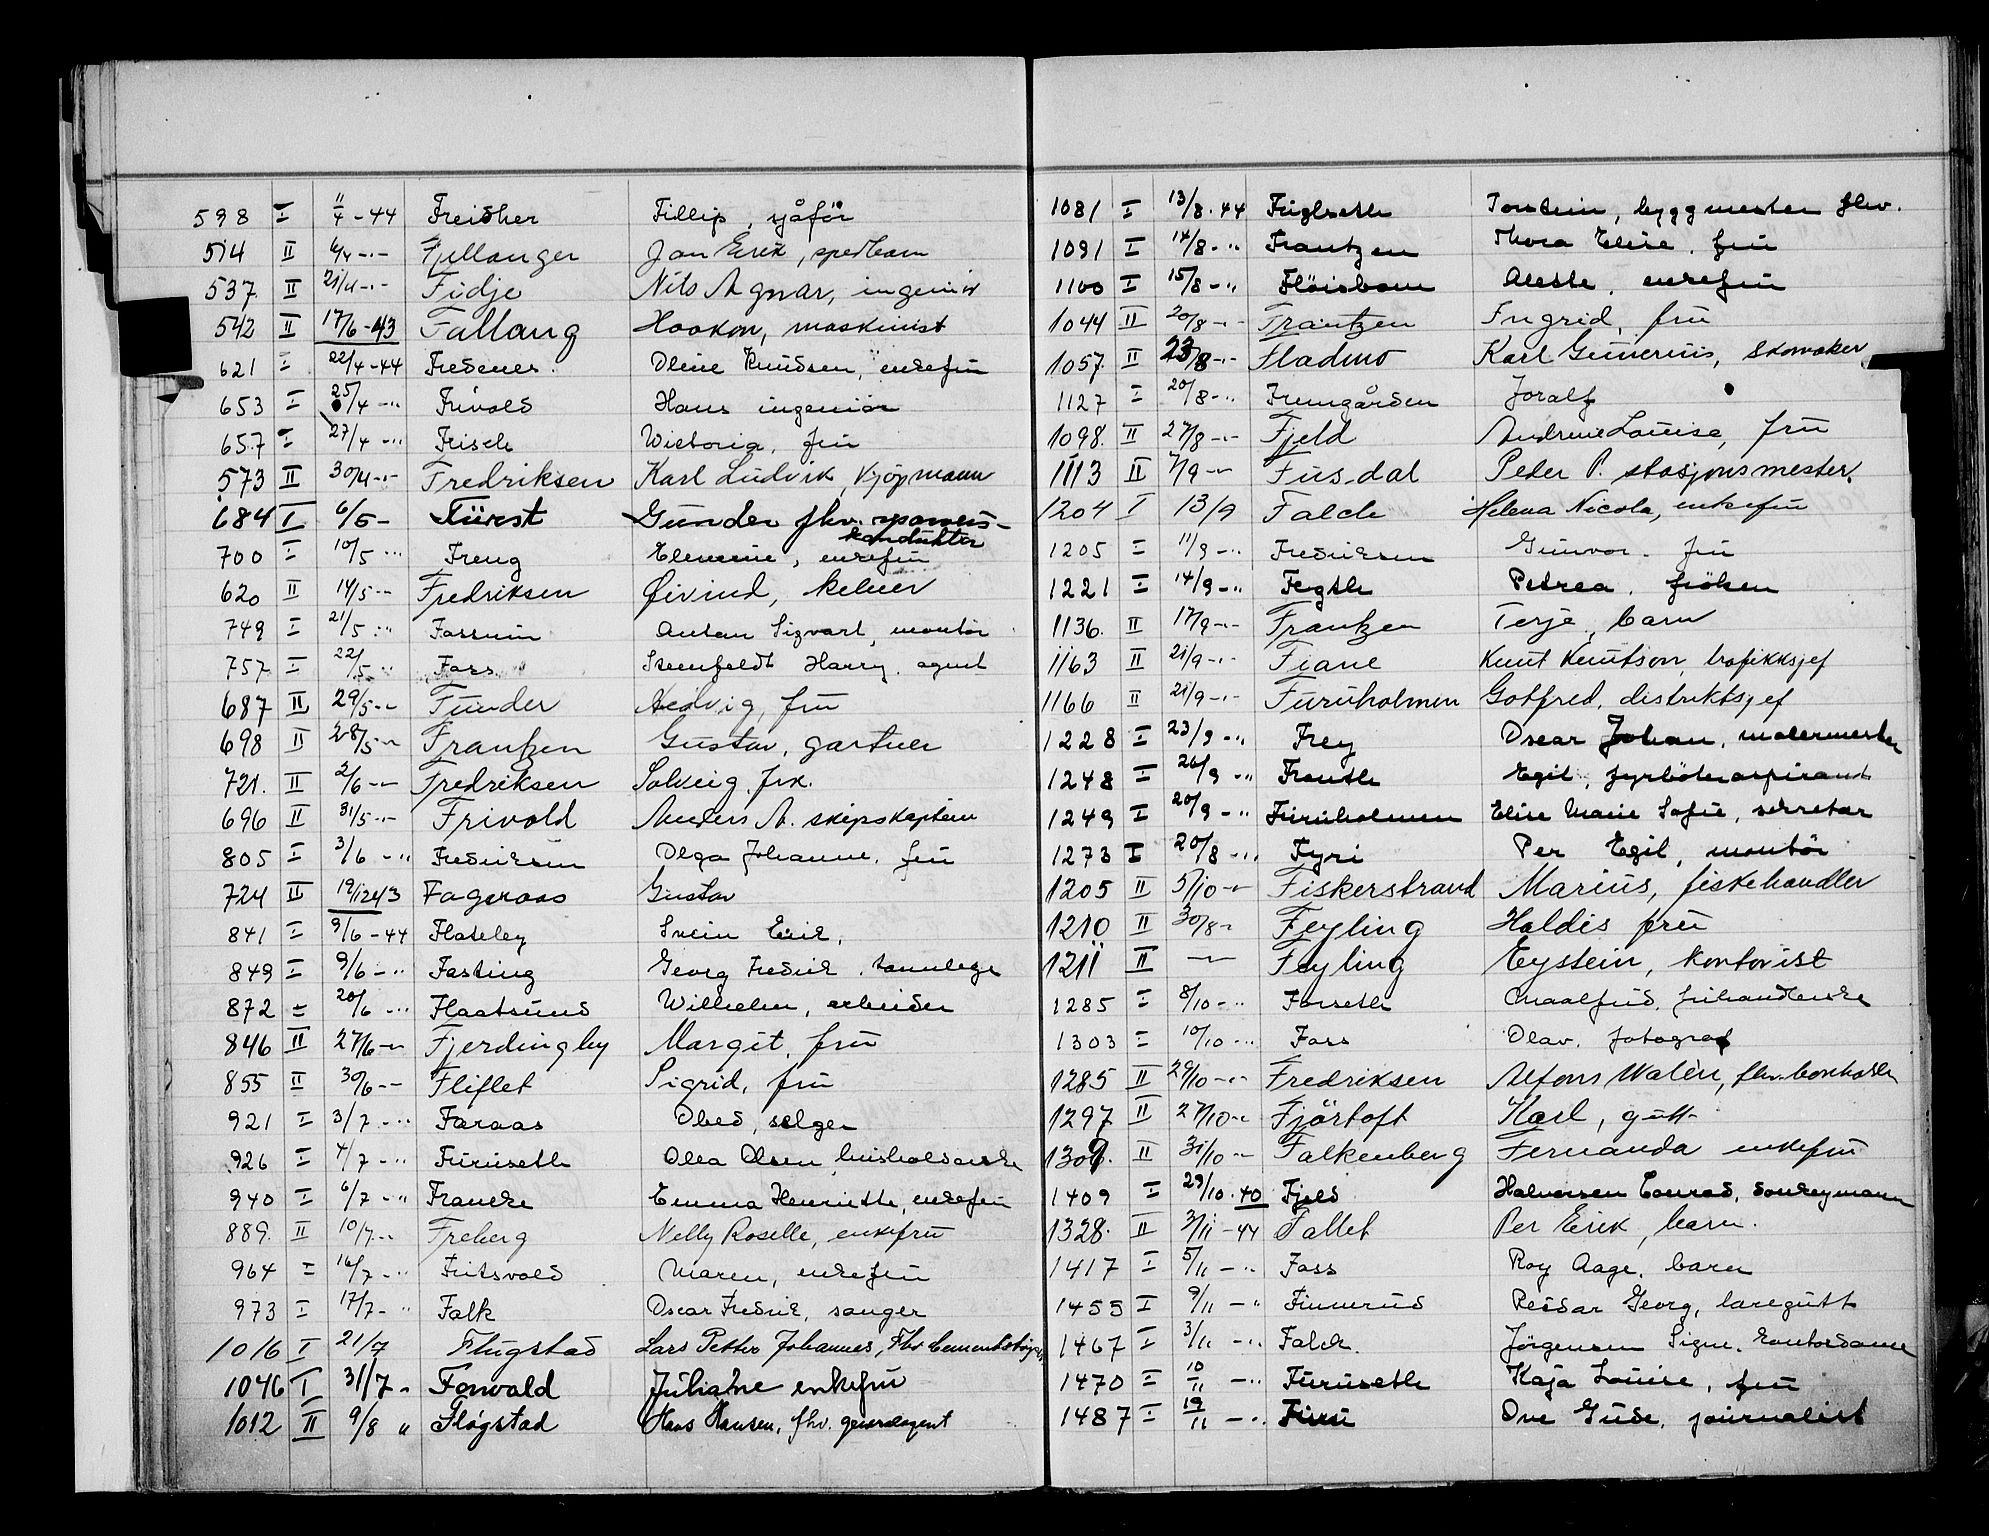 598 I 11/4 - 44 Freidher Fillip, sjåför
514 II 6/4 -"- Fjellanger Jan Erik, spedbarn
537 II 21/4 -"- Fidje Nils Agnar, ingeniör
542 II 17/6 - 43 Fallang Haakon, maskinist
621 I 22/4 - 44 Fredener. Oline Knudsen, enkefru
653 I 25/4 -" Frivold Hans ingeniör
657 I 27/4 -" Frisch Victoria, fru
573 II 30/4 -"- Fredriksen Karl Ludvik, kjöpmann
684 I 6/5 - Fürst Gunder fhv. sporveis-
konduktör
700 I 10/5 -" Freng Elevine, enkefru
620 II 14/5 -"- Fredriksen Øivind, kelner
749 I 21/5 -" Fossum Anton Sigvart, montör
757 I 22/5 -" Foss Steenfeldt Harry, agent
687 II 29/5 -"- Funder Hedvig, fru
698 II 28/5 -"- Frantzen Gustav, gartner
721. II 2/6 -"- Fredriksen Solveig, frk.
696 II 31/5 -"- Frivold Anders A. skipskaptein
805 I 3/6 -" Fredriksen Olga Johanne, fru
724 II 19/12 43 Fageraas Gustav
841 I 9/6 - 44 Flateby Svein Erik,
849 I 9/6 -" Fasting Georg Fredrik, tannlege
872 I 20/6 -" Flaatsund Wilhelm, arbeider
846 II 27/6 -"- Fjerdingby Margit, fru
855 II 30/6 -"- Fliflet Sigrid, fru
921 I 3/7 -" Faraas Obed, selger
926 I 4/7 -" Furuseth Olea Olsen, husholderske
940 I 6/7 -" Francke Emma Henriette, enkefru
889. II 10/7 -" Freberg Nelly Roselle, enkefru
964 I 16/7 -" Fritsvold Maren, enkefru
973 I 17/7 -" Falk Oscar Fredrik, sanger
1016 I 21/7 Flugstad Lars Petter Johannes, Fhv.
1046 I 31/7 - Forvald Juliane enkefru
1012 II 9/8 " Fløgstad Hans Hansen, fhv. generalagent
1081 I 13/8 - 44 Fuglseth Torstein, byggmester fhv.
1091 I 14/8 -" Frantzen Thora Elise, fru
1100 I 15/8 -" Flöisbonn Aleste, enkefru
1044 II 20/8 -"- Frantzen Ingrid, fru
1057. II 23/8 -"- Fladmo Karl Gunerius, skomaker
1127 I 20/8 -" Fremgården Joralf
1098. II 27/8 -"- Fjeld Andrine Louise, fru
1113 II 7/9 -"- Fusdal Peder P. stasjonsmester.
1204 I 13/9 Falch Helena Nicola, enkefru
1205 I 11/9 -" Fredriksen Gunvor. fru
1221 I 14/9 -" Fegth Petrea, fröken
1136. II 17/9 -"- Frantzen Terje, barn
1163 II 21/9 -"- Fiane Knut Knutson, trafikksjef
1166 II 21/9 -"- Furuholmen Gotfred, distriktsjef
1228 I 23/9 -" Frey Oscar Johan, malermester
1248 I 26/9 -" Fronth Egil, fyrböteraspirant
1249 I 20/9 -" Furuholmen Elise Marie Sofie, sekretær
1273 I 20/8 -" Fyri Per Egil, montör
1205 II 5/10 -"- Fiskerstrand Marius, fiskehandler
1210 II 30/8 - Feyling Haldis fru
1211 II -"- Feyling Eystein, kontorist
1285 I 8/10 -" Forseth Maalfrid,
1303 I 10/10 -" Foss Olav, fotograf
1285 II 29/10 -"- Fredriksen Alfons Walèn, fhv.
1297 II 27/10 -"- Fjörtoft Karl, gutt
1309. II 31/10 -"- Falkenberg Fernanda enkefru
1409 I 29/10 - 40 Fjeld Halvorsen Conrad, donkeymann
1328. II 3/11 - 44 Fallet Per Erik, barn.
1417 I 5/11 -" Foss Roy Aage, barn
1455 I 9/11 -" Finnerud Reidar Georg, læregutt
1467 I 3/11 -" Falck. Jörgensen Signe, kontordame
1470 I 10/11 -" Furuseth Kaja Louise, fru
1487 I 19/11 -" Furu Ove Gude, journalist